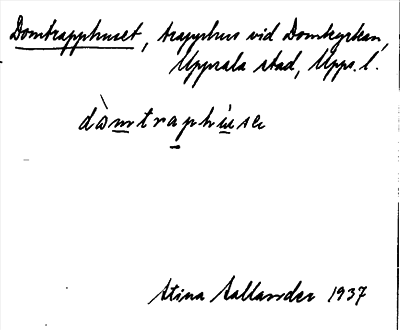 Domtrapphuset, trapphus vid Domkyrkan,
Uppsala stad, Upps. l.
dòmtraphùse
Stina Hallander 1937